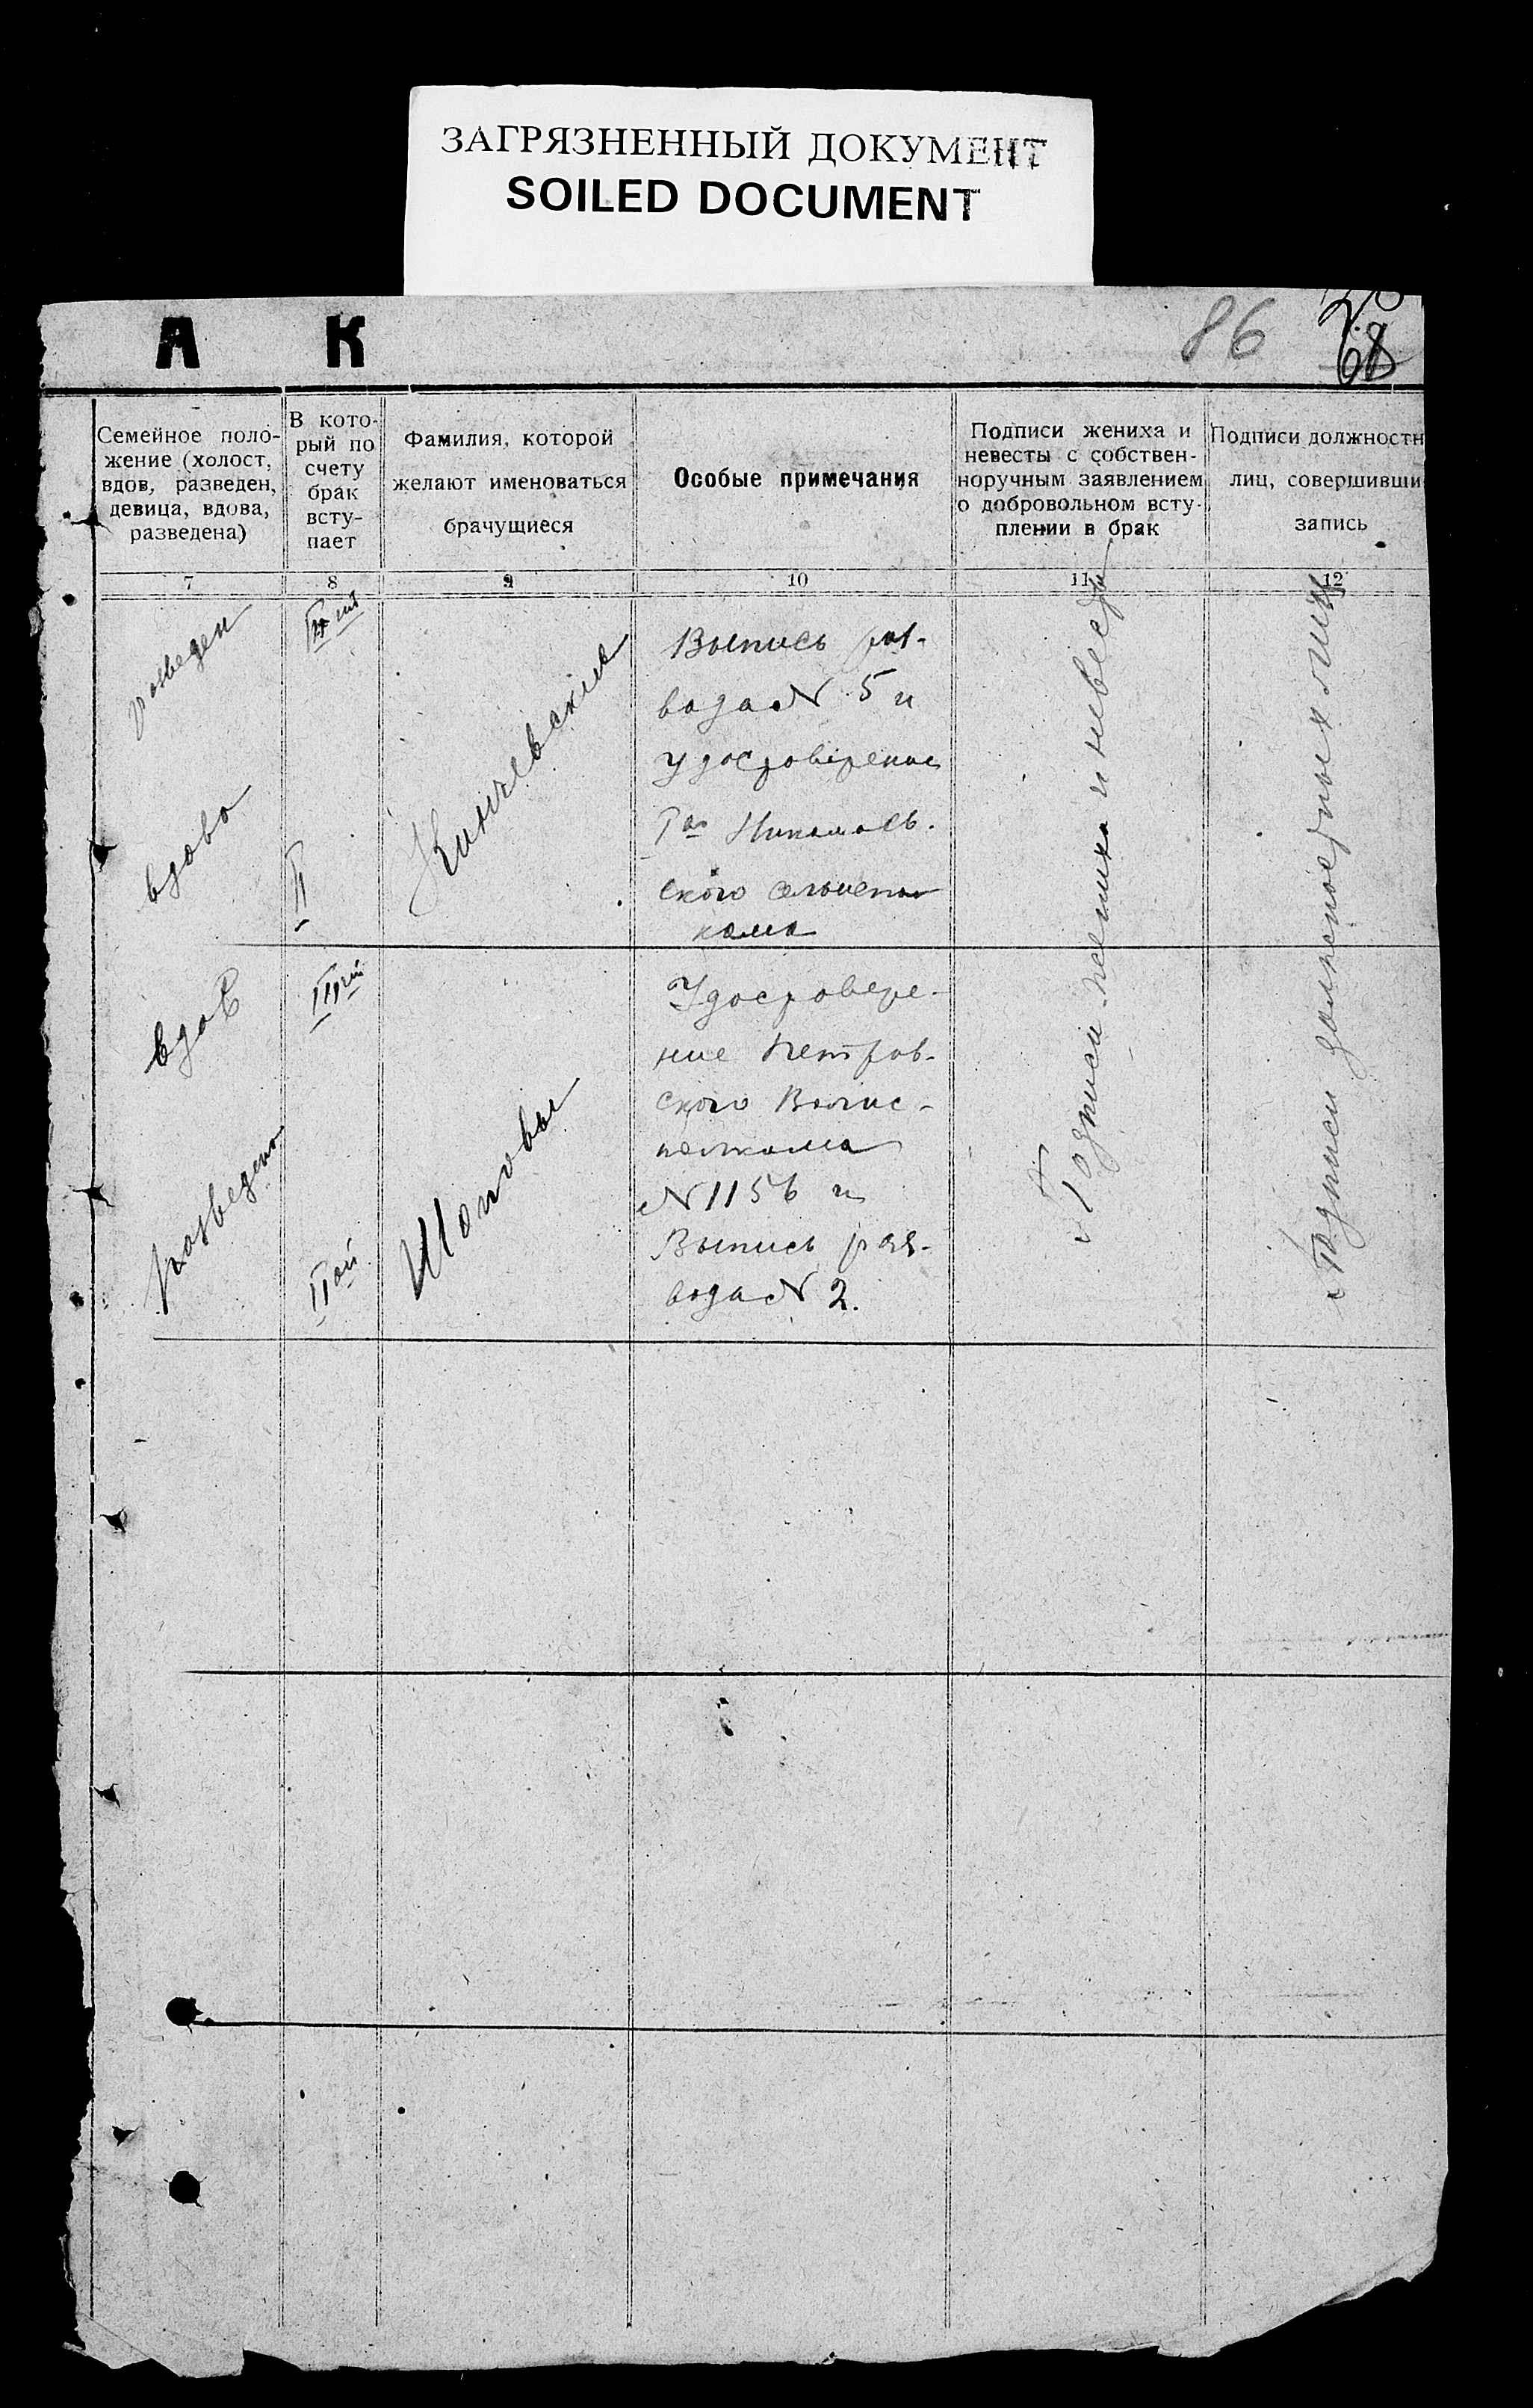 ЗАГРЯЗНЕННЫЙ ДОКУМЕНТ
SOILED DOCUMENT
А К
86
68
Семейное поло-
жение (холост,
вдов, разведен,
девица, вдова,
разведена)
В кото-
рый по
счету
брак
всту-
пает
Фамилия, которой
желают именоваться
брачущиеся
Особые примечания
Подписи жениха и
невесты с собствен-
норучным заявлением
о добровольном всту-
плении в брак
Подписи должностн
лиц, совершивши
запись
7 8 9 10 11 12
разведен
вдова
II
Кинчевские
Выпись раз-
вода № 5 и
удостоверение
Николаев-
ского сельиспол
кома
вдов
разведена
IIIий
IIой
Шаповы
Удостовере-
ние Петров-
ского Волис-
полкома
№ 1156 и
Выпись раз-
вода № 2.
Подписи жениха и невесты
Подписи должностных лиц